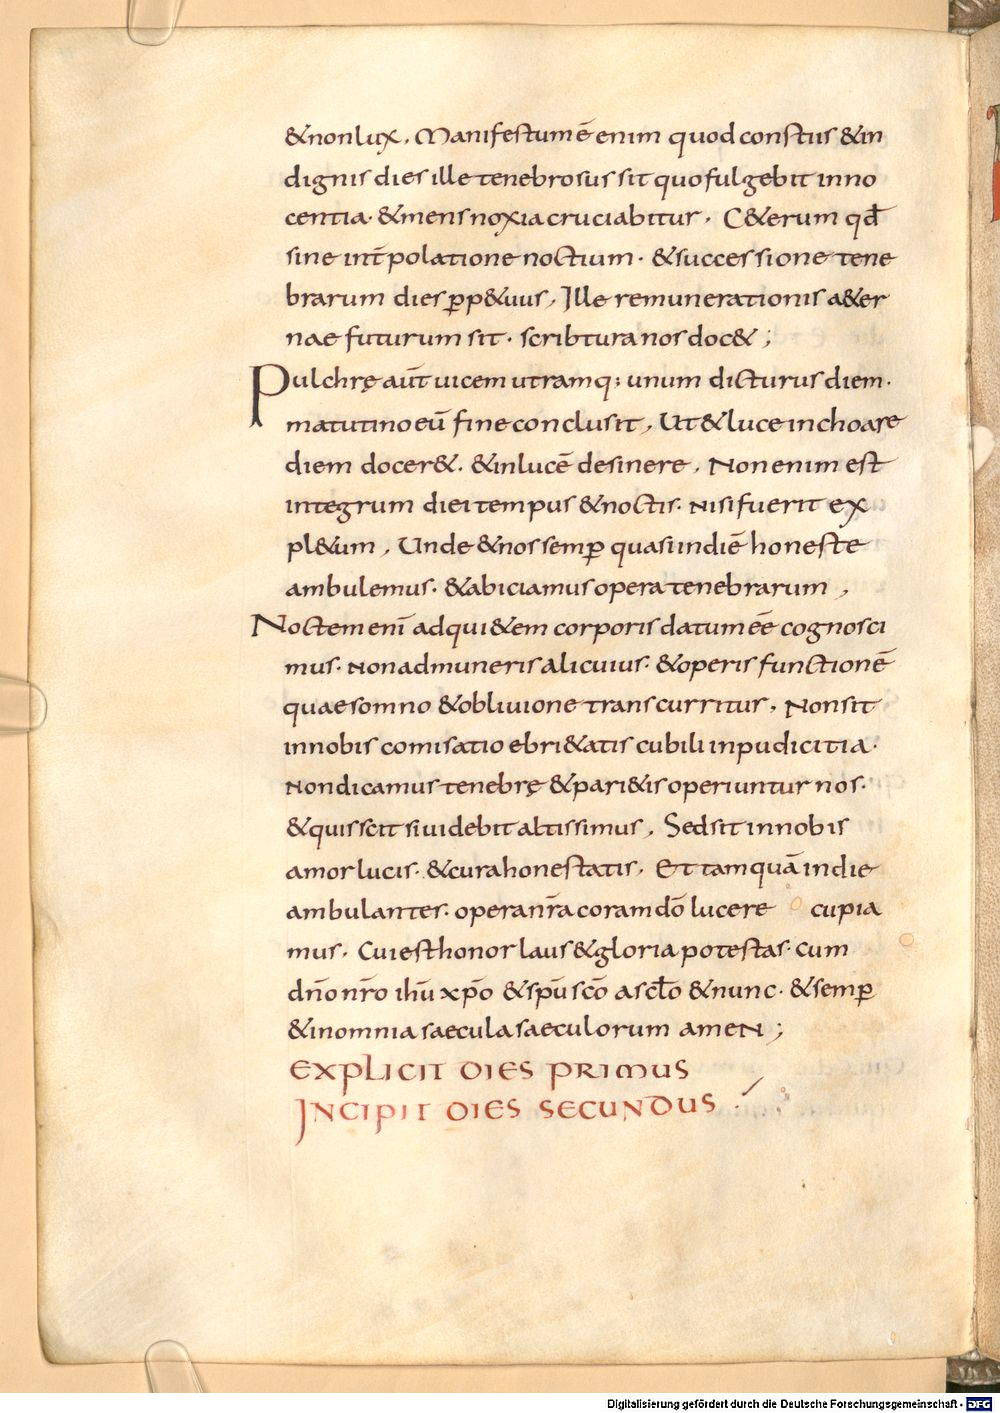 &nonlux. Manifestum ē enim quod constus &in
dignis dies ille tenebrosus sit quo fulgebit inno
centia· &mens noxia cruciabitur. C&erum qđ
sine int̄polatione noctium· &successione tene
brarum dies p̱p&uus, Ille remunerationis a&er
nae futurum sit· scribtura nos doc&;
Pulchrę aut̄ uicem utramq; unum dicturus diem·
matutino eū fine conclusit, Ut &luce inchoare
diem docer&· &in lucē desinere, Non enim est
integrum diei tempus &noctis· nisi fuerit ex
pl&um, Unde &nos semp̱ quasi in diē honeste
ambulemus· &abiciamus opera tenebrarum,
Noctem eni̅ ad qui&em corporis datum eē cognosci
mus· non ad muneris alicuius· &operis functionē
quae somno &obliuione transcurritur, Non sit
in nobis comisatio ebri&atis cubili inpudicitia·
Non dicamus tenebrę &pari&is operiuntur nos·
&quis scit si uidebit altissimus, Sed sit in nobis
amor lucis· &cura honestatis, Et tamquā in die
ambulantes· opera nr̄a coram dō lucere cupia
mus, Cui est honor laus &gloria potestas· cum
dn̄o nr̄o ihū xp̄o &sp̄u sc̄o a sclō &nunc· &semp̱
&in omnia saecula saeculorum amen;
EXPLICIT DIES PRIMUS
INCIPIT DIES SECUNDUS
Digitalisierung gefördert durch die Deutsche Forschungsgemeinschaft - DFG